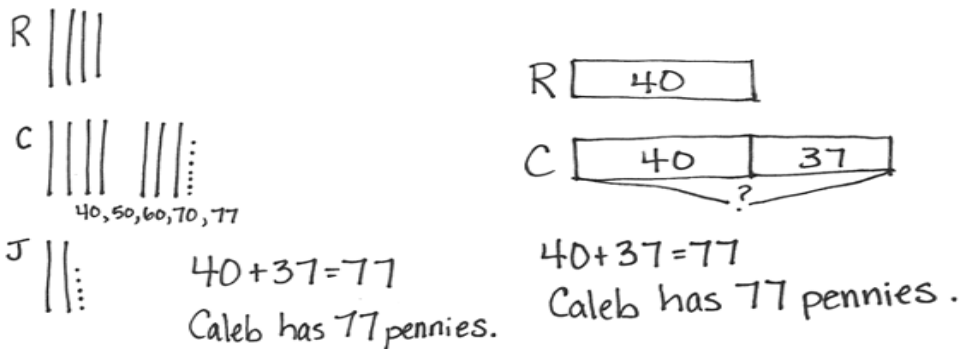 R
C
40,50,60,70,77
J
40+37=77
Caleb has 77 pennies.
R 40
C 40 37
?
40+37=77
Caleb has 77 pennies.